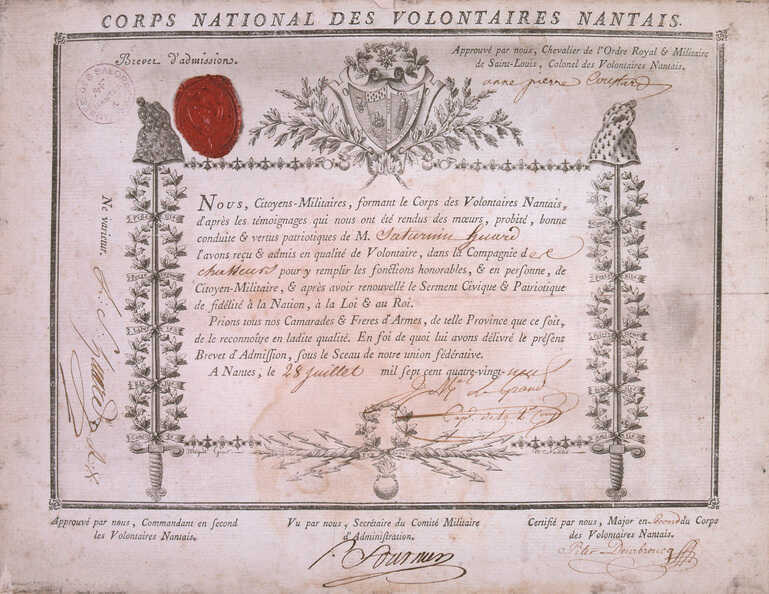 CORPS NATIONAL DES VOLONTAIRES NANTAIS.
Brevet d'admission.
Approuvé par nous, Chevalier de l'Ordre Royal & Militaire
de Saint-Louis, Colonel des Volontaires Nantais.
anne pierre Coustard
Ne varietur.
NOUS, Citoyens-Militaires, formant le Corps des Volontaires Nantais,
d'après les témoignages qui nous ont été rendus des mœurs, probité, bonne
conduite & vertus patriotiques de M. Saturnin
l'avons reçu & admis en qualité de Volontaire, dans la Compagnie des
chasseurs pour y remplir les fonctions honorables, & en personne, de
Citoyen-Militaire, & après avoir renouvellé le Serment Civique & Patriotique
de fidélité à la Nation, à la Loi & au Roi.
Prions tous nos Camarades & Freres d'Armes, de telle Province que ce soit,
de le reconnoître en ladite qualité. En foi de quoi lui avons délivré le présent
Brevet d'Admission, sous le Sceau de notre union fédérative.
A Nantes, le 28 juillet mil sept cent quatre-vingt-neuf
Approuvé par nous, Commandant en second
les Volontaires Nantais.
Vu par nous, Secrétaire du Comité Militaire
d'Administration.
Fournier
Certifié par nous, Major en second du Corps
des Volontaires Nantais.
Deurbroucq